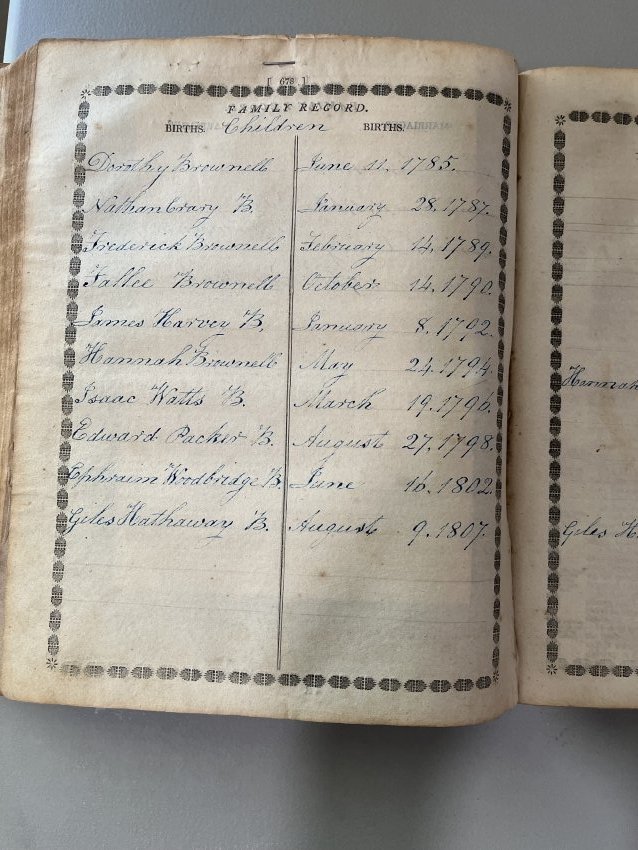 [ 678 ]
FAMILY RECORD.
BIRTHS. Children BIRTHS.
Dorothy Brownell June 11. 1785.
Nathan Crary B. January 28. 1787.
Frederick Brownell February 14. 1789.
Fallee Brownell October 14. 1790.
James Harvey B. January 8. 1792.
Hannah Brownell May 24. 1794.
Isaac Watts B. March 19. 1796.
Edward Packer B. August 27. 1798.
Ephraim Woodbridge B. June 16. 1802.
Giles Hathaway B. August 9. 1807.
Hannah
Giles